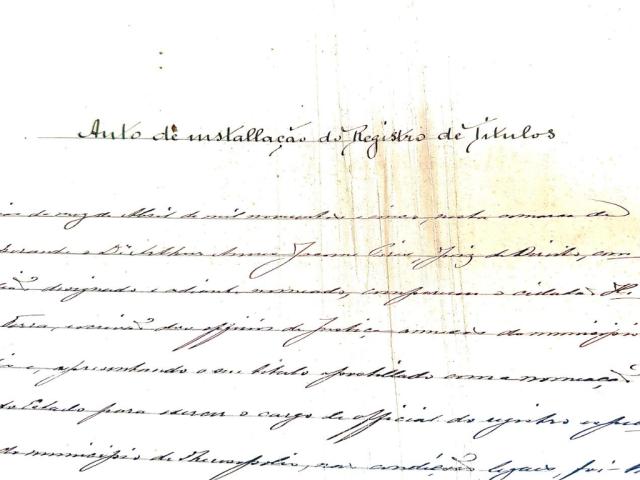 Auto de installação do Registro de Titulos
do mez de Abril de mil novecentos e cinco, nesta comarca de
o Dr. Arthur Juiz de Direito, com
designado e adiante nomeado, compareceu o cidadão
Terra, escrivão dos officios de Justiça annexos do municipio
e, apresentando o seu titulo apostillado com a nomeação
do Estado para exercer o cargo de official do registro
do municipio de Therezopolis, nas condições legaes, foi